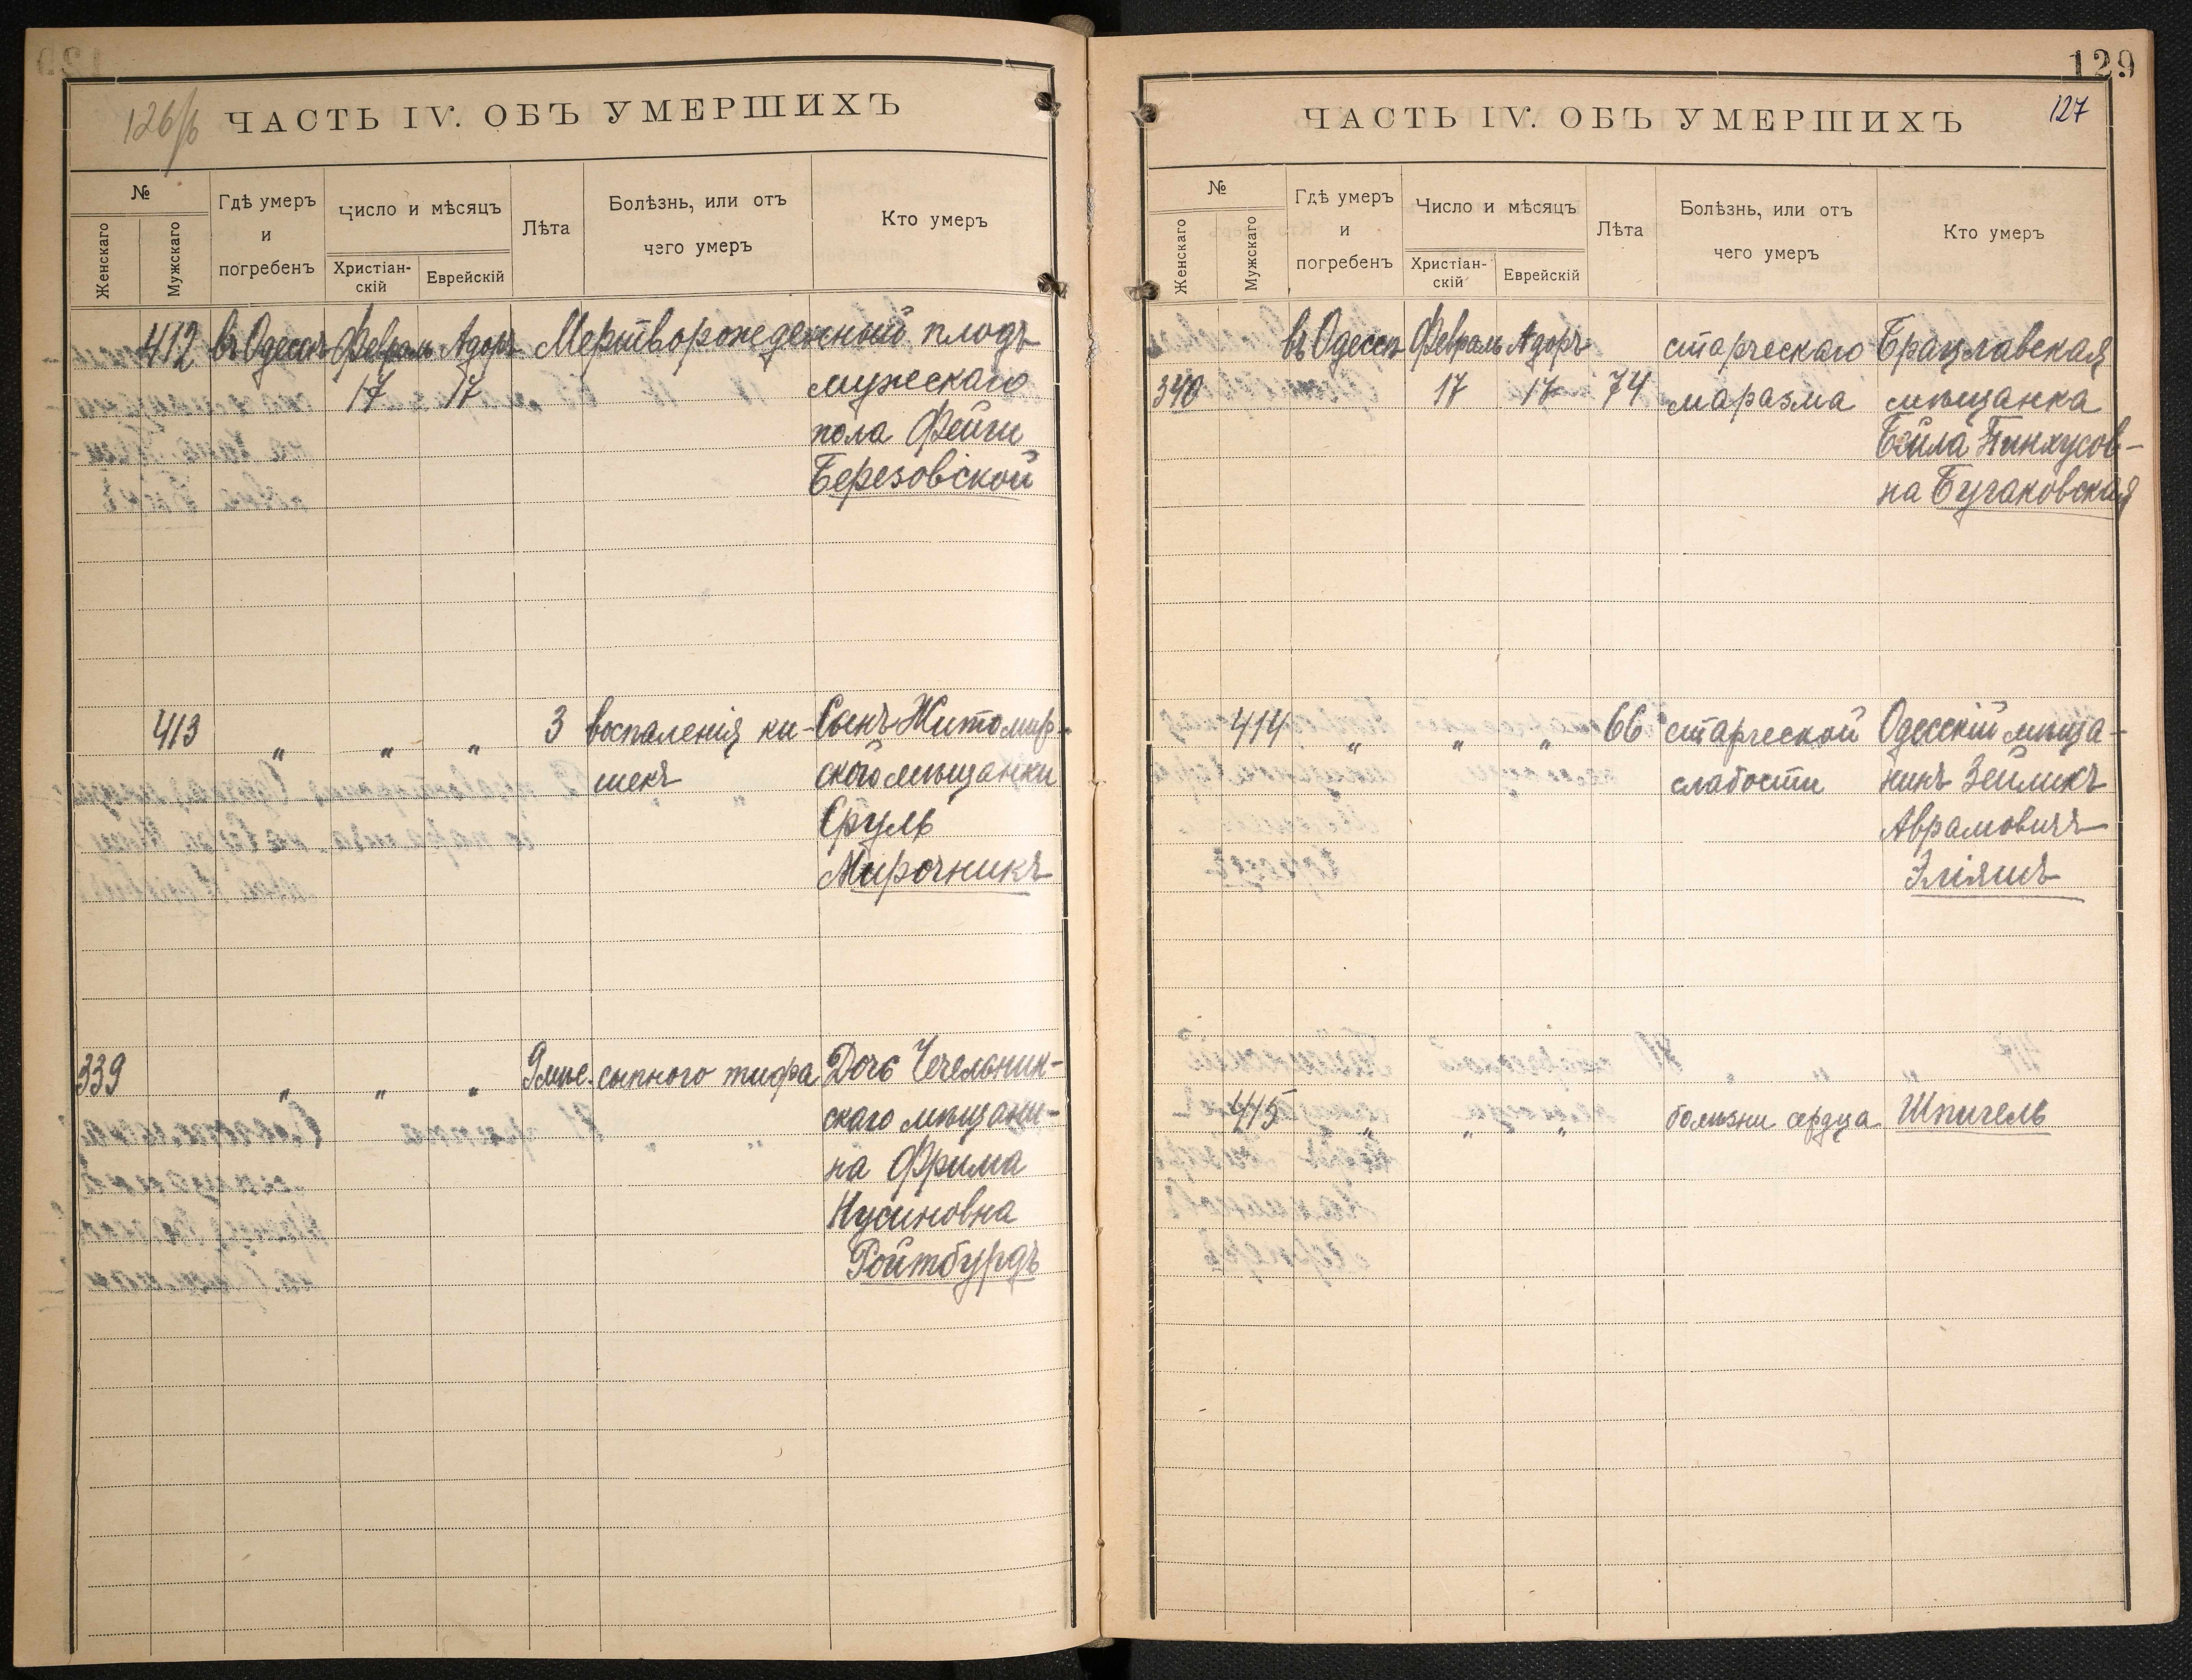 126/б
ЧАСТЬ IV. ОБЪ УМЕРШИХЪ
№
Женскаго
Мужскаго
Гдѣ умеръ
и
погребенъ
Число и мѣсяцъ
Христіан-
скій
Еврейскій
Лѣта
Болѣзнь, или отъ
чего умеръ
Кто умеръ
412 въ Одессѣ Февраль Адоръ Мертворожденный плодъ
17 17 мужескаго
пола Фейги
Березовской
413 „ „ „ 3 воспаленія ки- Сынъ Житомир-
шекъ ской мѣщанки
Сруль
Мирочникъ
339 „ „ „ 9 мѣс. сыпного тифа Дочь Чечельник-
скаго мѣщани-
на Фрима
Нусиновна
Ройтбурдъ
129
127
ЧАСТЬ IV. ОБЪ УМЕРШИХЪ
№
Женскаго
Мужскаго
Гдѣ умеръ
и
погребенъ
Число и мѣсяцъ
Христіан-
скій
Еврейскій
Лѣта
Болѣзнь, или отъ
чего умеръ
Кто умеръ
въ Одессѣ Февраль Адоръ старческаго Брацлавская
340 17 17 74 маразма мѣщанка
Бейла Пинхусов-
на Бугаковская
414 „ „ „ 66 старческой Одесскій мѣща-
слабости нинъ Зейликъ
Аврамовичъ
Эліяшъ
415 „ „ „ болѣзни сердца Шпигель